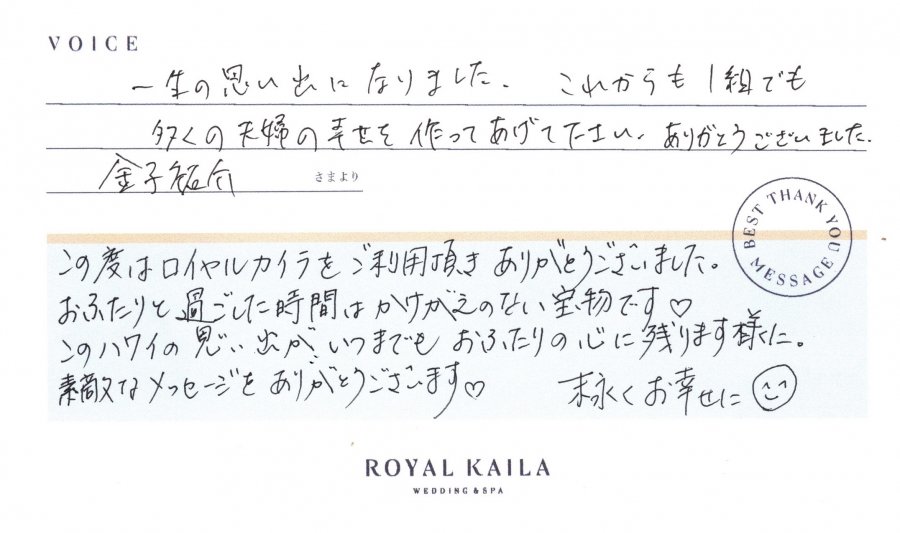 VOICE
一生の思い出になりました。 これからも1組でも
多くの夫婦の幸せを作ってあげて下さい。ありがとうございました。
金子祐介 さまより
BEST THANK YOU MESSAGE
この度はロイヤルカイラをご利用頂きありがとうございました。
おふたりと過ごした時間はかけがえのない宝物です♡
このハワイの思い出がいつまでもおふたりの心に残ります様に。
素敵なメッセージをありがとうございます♡ 末永くお幸せに
ROYAL KAILA
WEDDING & SPA